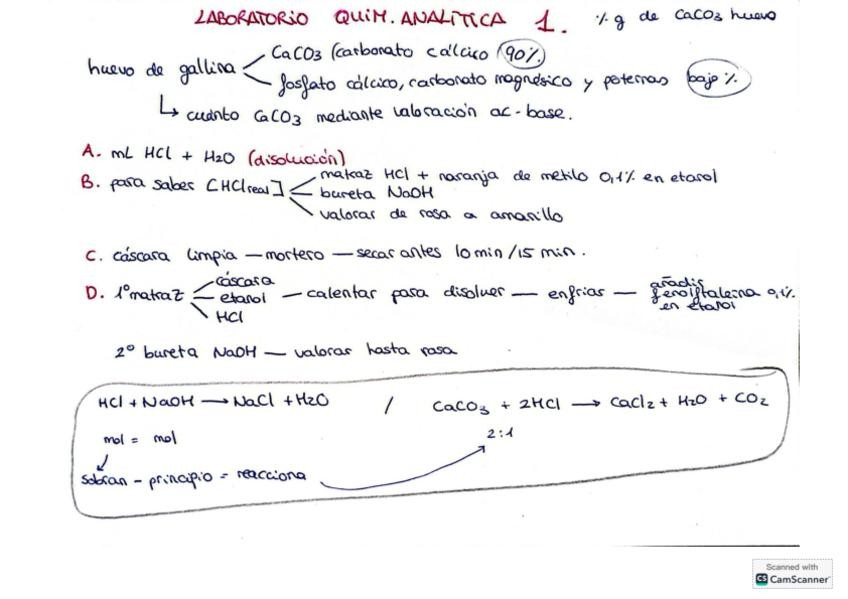 LABORATORIO QUIM. ANALÍTICA 1. % g de CaCO3 huevo
huevo de gallina CaCO3 (carbonato cálcico (90%)
fosfato cálcico, carbonato magnésico y poternas bajo %
↳ cuánto CaCO3 mediante valoración ac-base.
A. mL HCl + H2O (disolución)
B. para saber [HCl real] matraz HCl + naranja de metilo 0,1% en etanol
bureta NaOH
valorar de rosa a amarillo
C. cáscara limpia — mortero — secar antes 10 min/15 min.
D. 1º matraz cáscara
etanol — calentar para disolver — enfrias — añadis fenolftaleina 0,1% en etanol
HCl
2º bureta NaOH — valorar hasta rosa
HCl + NaOH → NaCl + H2O / CaCO3 + 2HCl → CaCl2 + H2O + CO2
mol = mol 2:1
sobran - principio = reacciona
Scanned with
CS CamScanner